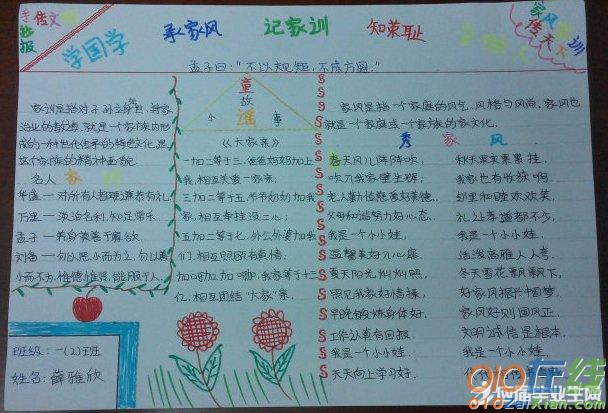 学国学
承家风
记家训
知荣耻
孟子曰:"不以规矩,不成方圆."
家训是指对子孙立身处世、持家
治业的教诲.就是一个家族内形
成的一种世代传承的特色文化,是
这个家族的精神面貌.
名人家训
华盛一对所有人都要谦恭有礼.
万里一淡泊名利,知足常乐.
孟子一养身莫善于寡欲.
刘备一勿以恶小而为之,勿以善
小而不为.惟德惟贤,能服于人.
班级:一(2)班
姓名:薛雅欣
童
故
小 谣 事
《大家亲》
一加二等于三,爸爸妈妈加上
我,相互关爱一家亲.
三加二等于五,爷爷奶奶加我
家,相互孝挂没二心;
五加二等于七,外公外婆加我
们,相互照顾有真情;
加呀加,加呀加,我家等于十三
亿,相互团结"大家"亲.
家风是指一个家庭的风气、风格与风尚.家风也
就是一个家庭或一个家族的家文化.
秀 家 风
春天风儿阵阵吹,
吹入我家壁生辉;
老人勤俭慈善好美德,
父母和谐努力好心态.
我是一个小小娃,
温馨美好入心庭.
夏天阳光灿灿照,
照见我家好情操;
早晚锻炼身体好,
工作认真有回报.
我是一个小小娃,
天天向上学习好.
秋天果实累累挂,
我家也有收获啊.
邻里和睦欢欢笑,
礼让孝道都不少.
我是一个小小娃,
活泼高雅人人夸.
冬天雪花飘飘下,
好家风振兴中国梦.
家风好则国风正,
文明诚信是根本.
我是一个小小娃,
910在线
910ZaiXian.com
应届毕业生网